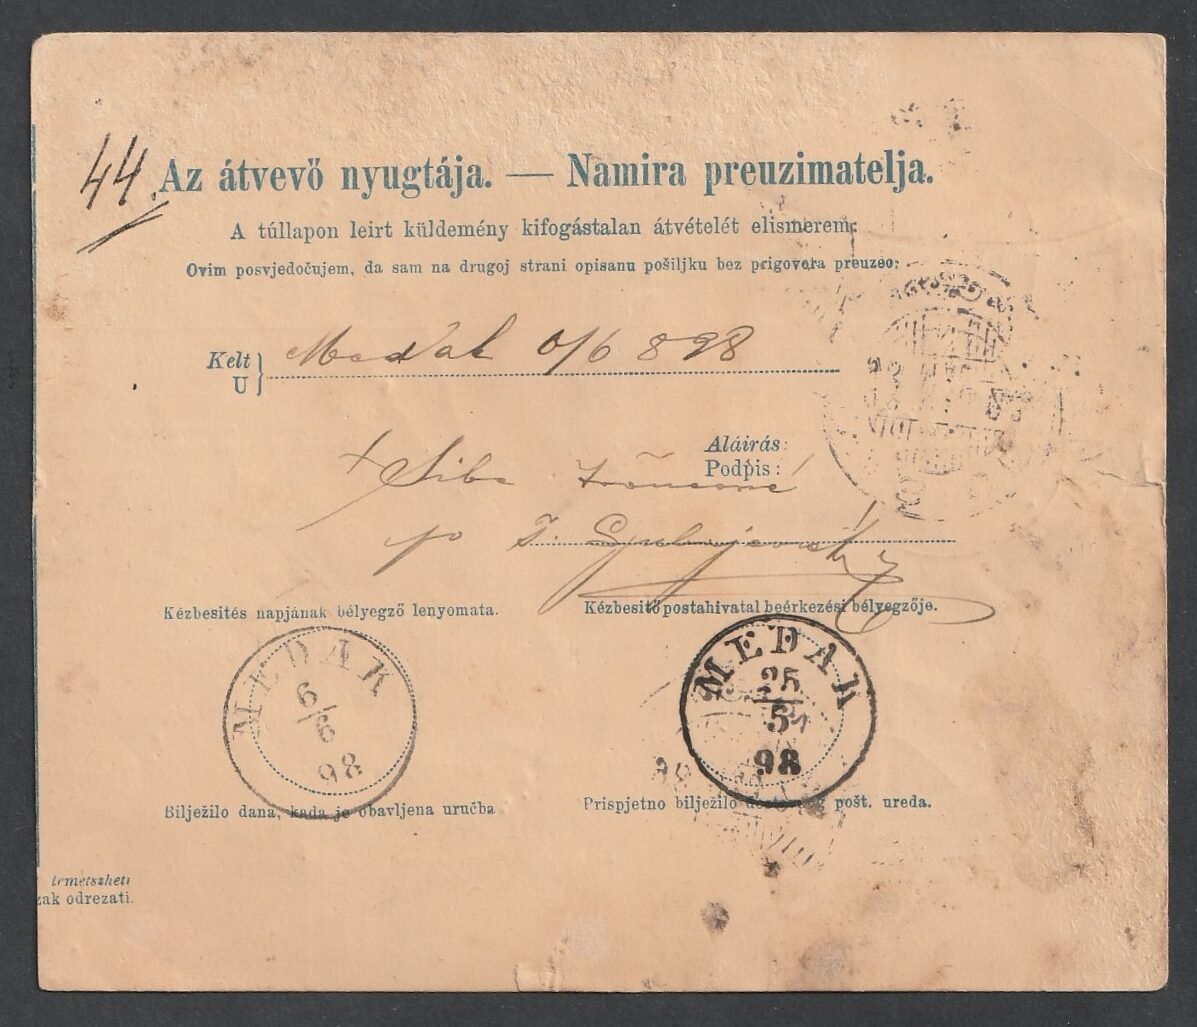 44. Az átvevő nyugtája. — Namira preuzimatelja.
A túllapon leirt küldemény kifogástalan átvételét elismerem:
Ovim posvjedočujem, da sam na drugoj strani opisanu pošiljku bez prigovora preuzeo:
Kelt
U } Medak 6/6 898
Aláirás:
Podpis:
Kézbesités napjának bélyegző lenyomata.
Kézbesitő postahivatal beérkezési bélyegzője.
MEDAK
6/6
98
MEDAK
25/5
98
Bilježilo dana, kada je obavljena uručba
Prispjetno bilježilo pošt. ureda.
temetszheti
zak odrezati.